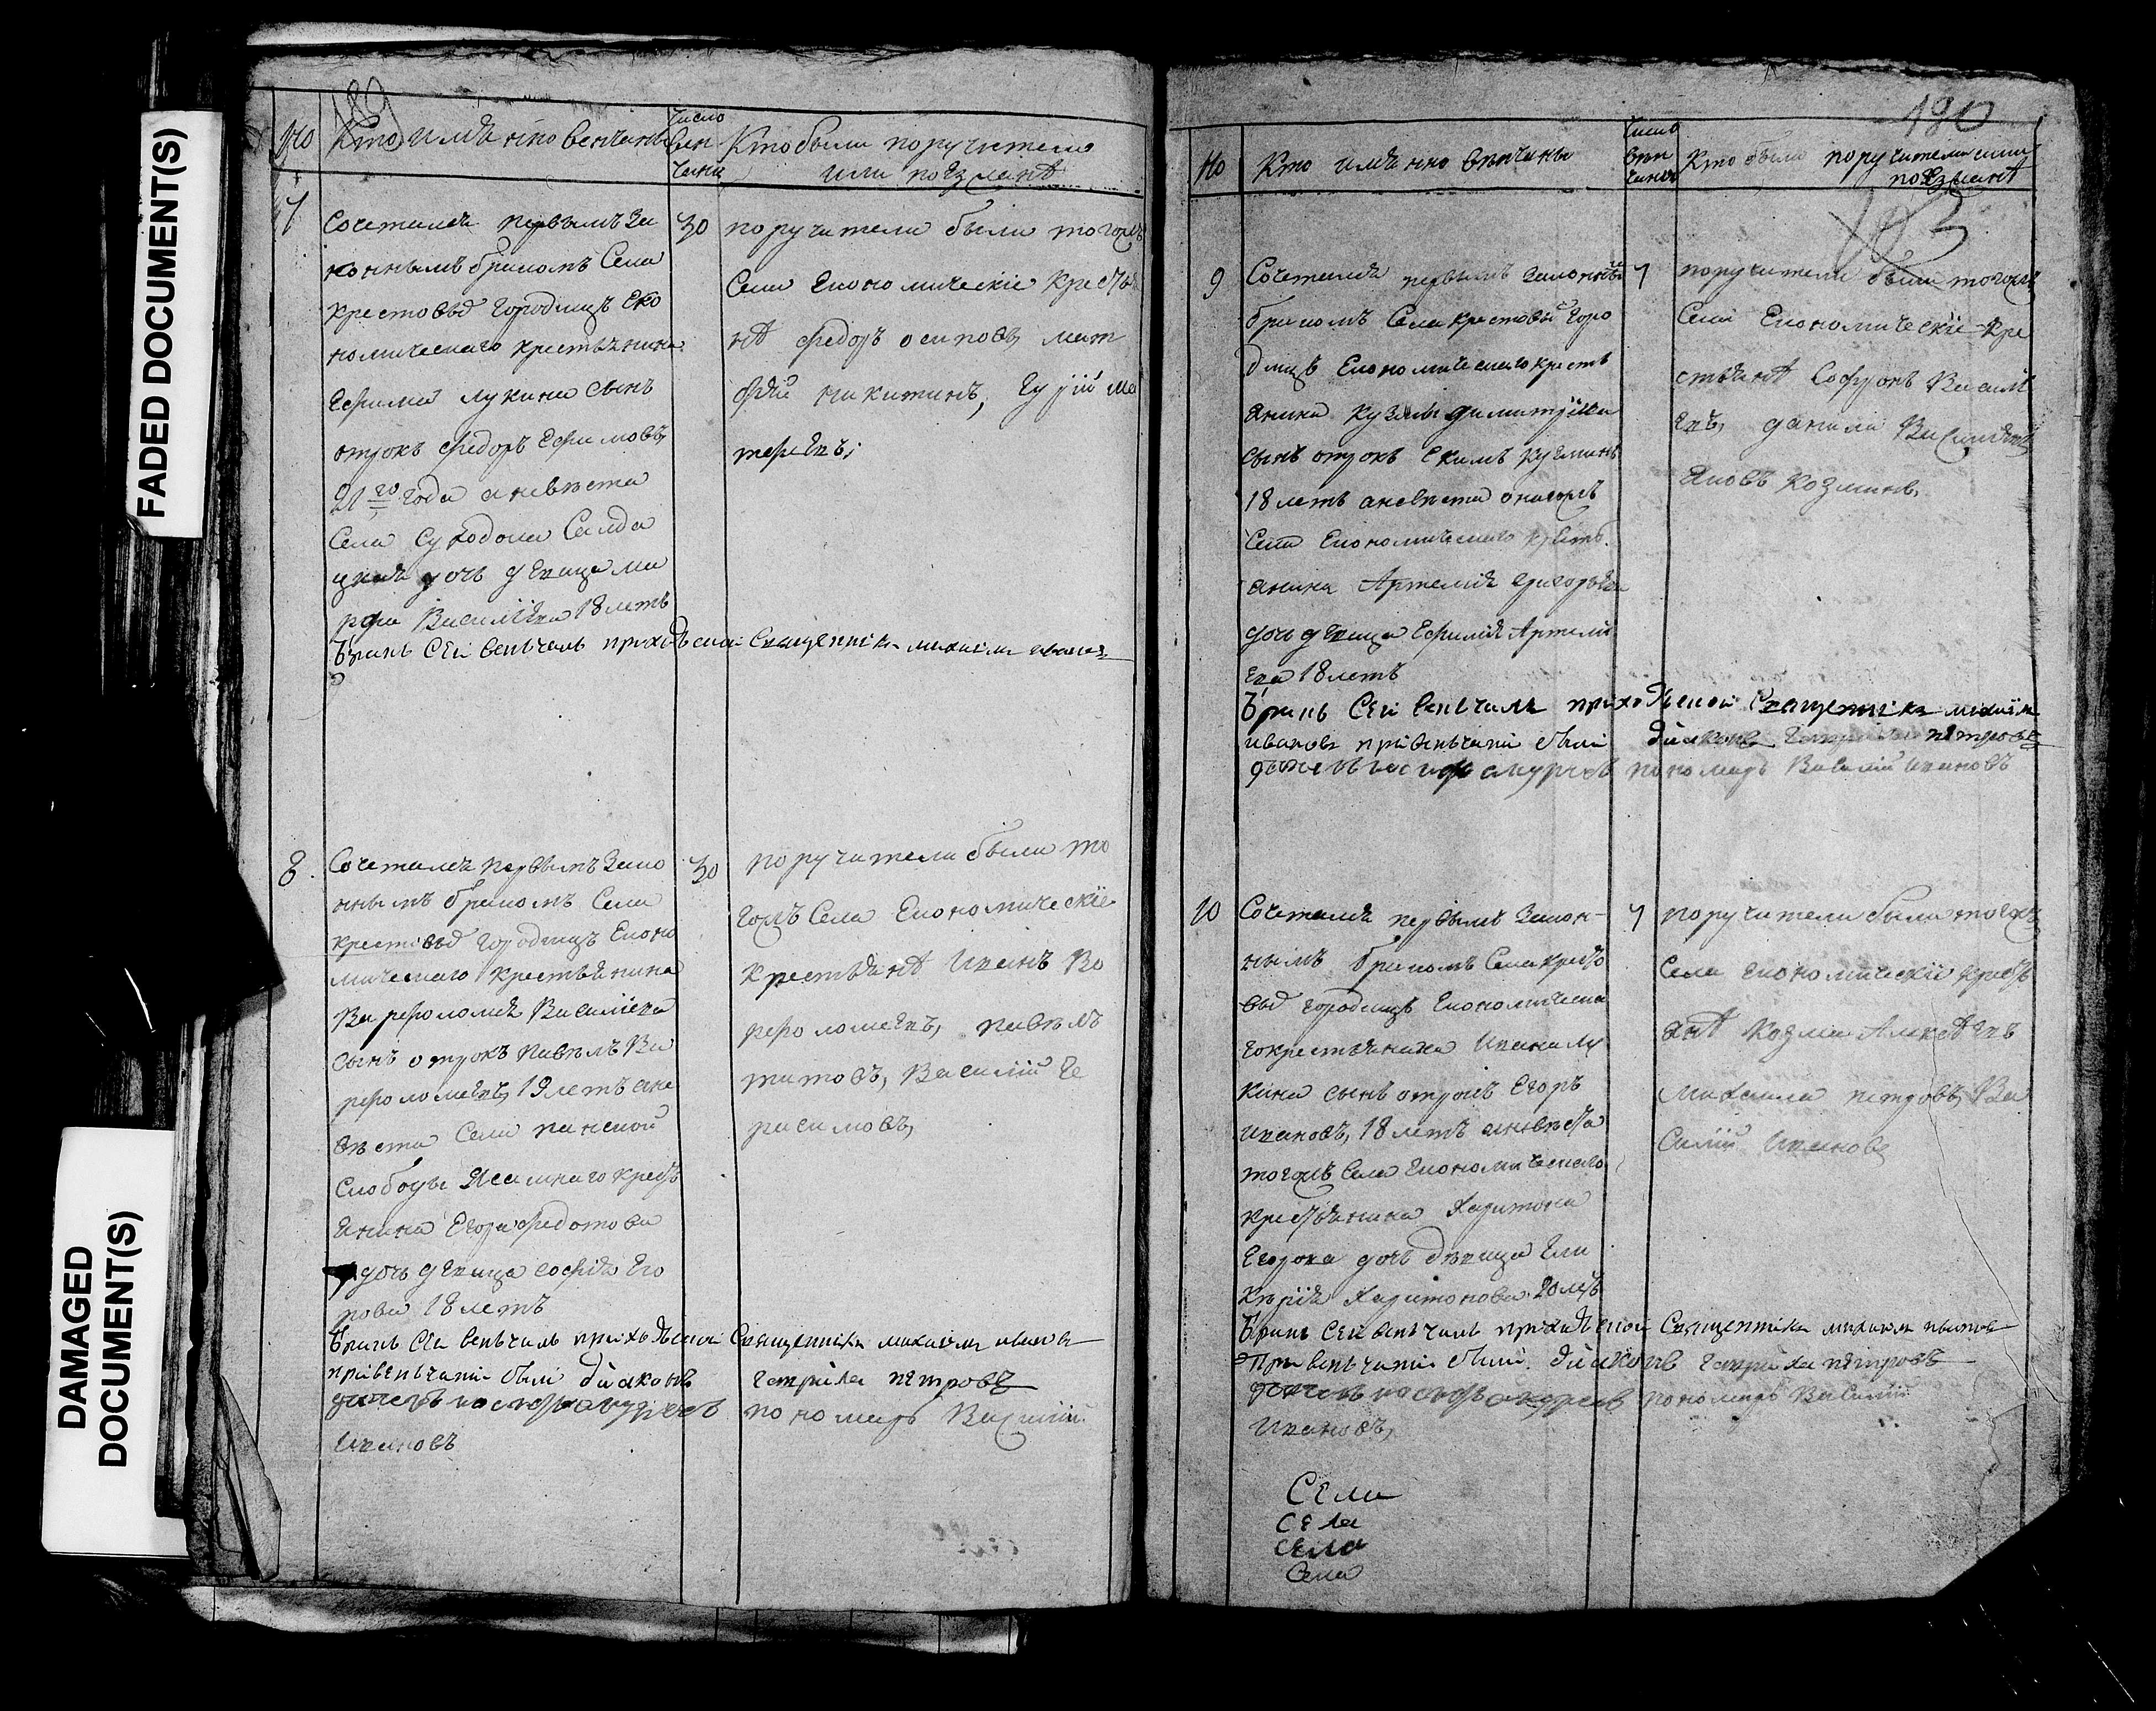 FADED DOCUMENT(S)
DAMAGED
DOCUMENT(S)
189
Но
Кто имянно венчаны
число
вен
чания
Кто были поручители
или поѣзжанѣ
7
Сочетался первымъ за
коннымъ бракомъ Села
крестовыхъ Городищъ Еко
номическаго крестьянина
Ефима лукина сынъ
отрокъ федоръ Ефимовъ
21 го года а невѣста
Села Суходола Салда
цкая дочь дѣвица ма
рфа Василіева 18 летъ
бракъ Сей венчалъ приходской Священникъ михаилъ ивановъ
30
поручители были тогожъ
Села Економическіе кресть
нѣ федоръ осиповъ, мат
фѣй никитинъ,
8.
Сочетался первымъ зако
ннымъ бракомъ Села
крестовыхъ Городищъ Еконо
мическаго крестьянина
Варфоломѣя Василіева
сынъ отрокъ павѣлъ Ва
рфоломѣевъ, 19 летъ а не
вѣста Села
Слободы Ясашнаго кресть
янина Егора федотова
дочь дѣвица софія Его
рова 18 летъ
бракъ Сей венчалъ приходской Священникъ михаилъ ивановъ
при венчаніи были діаконъ гаврила пѣтровъ
пономарь Василій
Ивановъ
30
поручители были то
гожъ Села Економическіе
крестьянѣ Иванъ Ва
рфоломѣевъ, павѣлъ
титовъ, Василій Ге
расимовъ,
190
Но
Кто имянно вѣнчаны
число
вѣн
чания
Кто были поручители или
поѣзжанѣ
9
Сочетался первымъ законнымъ
бракомъ Села крестовыхъ Горо
дищъ Економическаго кресть
янина Кузмы димитріева
сынъ отрокъ Екимъ кузминъ
18 летъ а невѣста онагожъ
Села Економическаго кресть
янина Артемія григорьева
дочь дѣвица Ефимія Артемі
ева 18 летъ
бракъ Сей венчалъ приходской Священникъ михаилъ
ивановъ при венчаніи были діаконъ гаврила пѣтровъ
пономарь Василій Ивановъ
7
поручители были тогожъ
Села Економическіе кре
стьянѣ Софронъ Василь
евъ, данила Василиевъ
Яковъ козминъ,
10
Сочетался первымъ закон-
нымъ бракомъ Села кресто
выхъ городищъ Економическа
го крестьянина Ивана лу
кина сынъ отрокъ Егоръ
Ивановъ, 18 летъ а невѣста
тогожъ Села Економическаго
крестьянина Харитона
Егорова дочь дѣвица Гли
кѣрія Харитонова 20 летъ
бракъ Сей венчалъ приходской Священникъ михаилъ ивановъ
При венчаніи были діаконъ гаврила пѣтровъ
пономарь Василій
Ивановъ,
7
поручители были тогожъ
Села Економическіе кресть
янѣ Козма Алексѣевъ
михаила пѣтровъ, Ва
силій Ивановъ
Села
Села
Села
Села